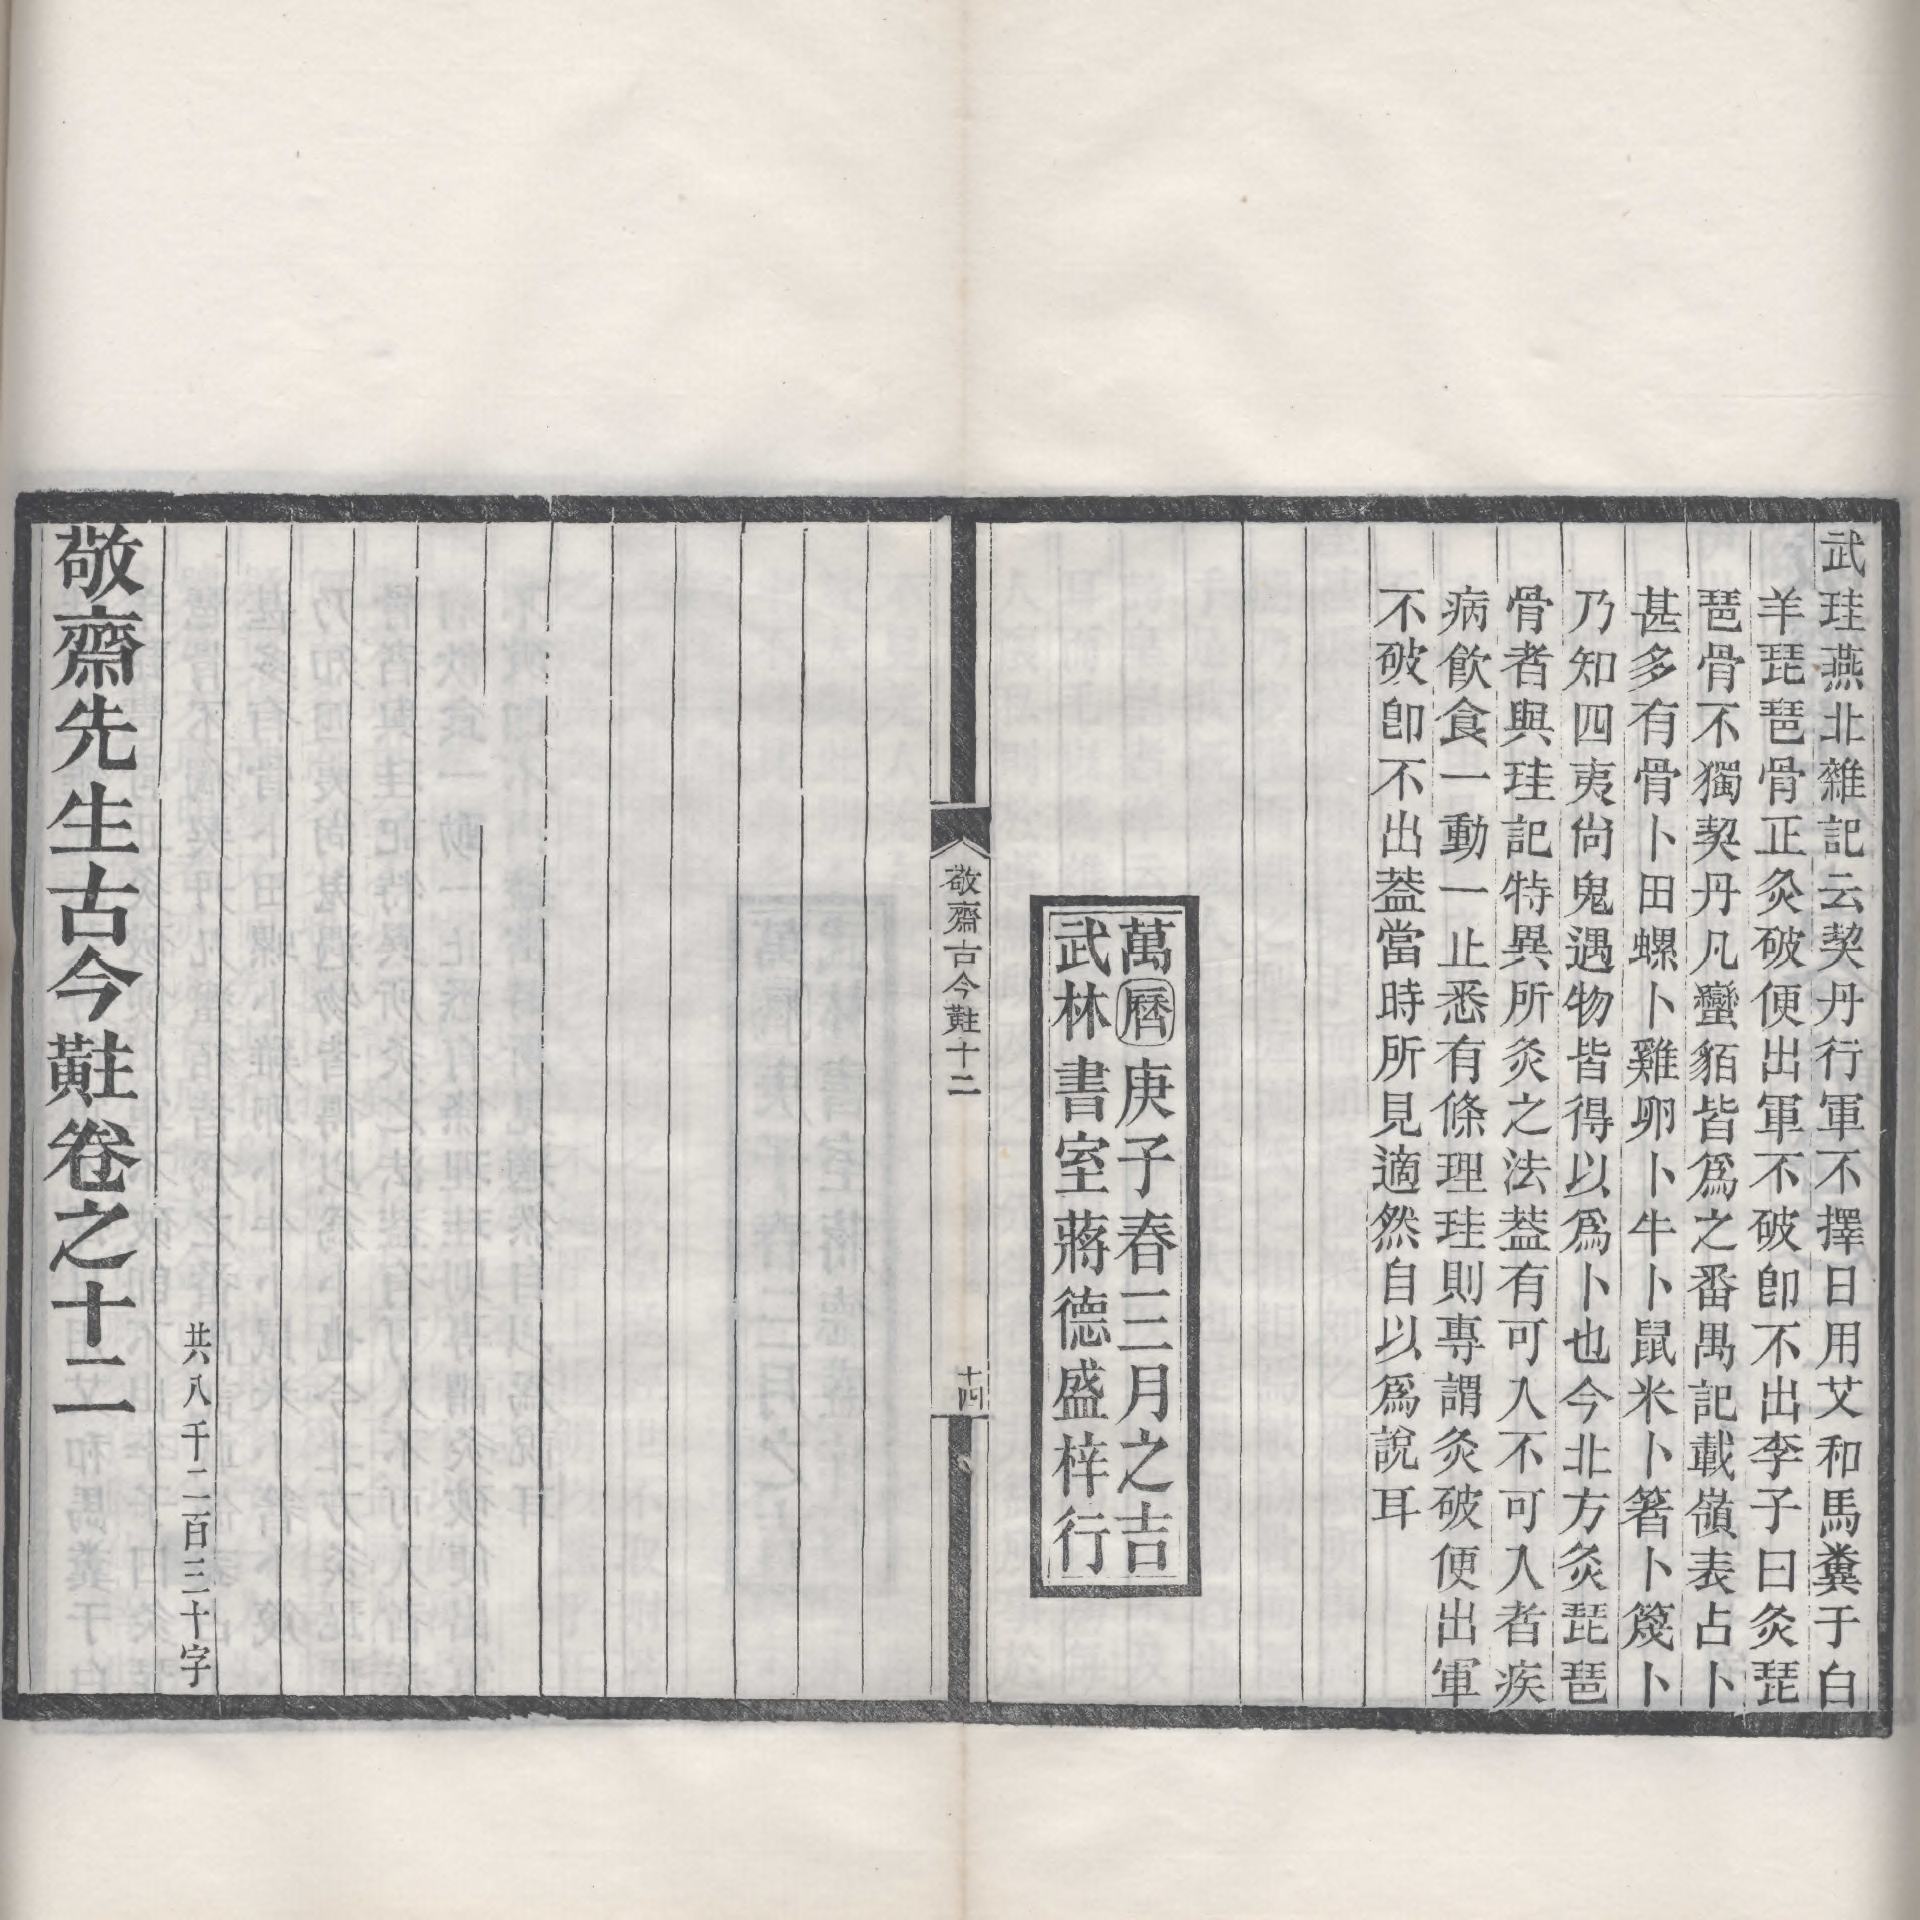 武珪燕北雜記云契丹行軍不擇日用艾和馬糞于白
羊琵琶骨正灸破便出軍不破卽不出李子曰灸琵
琶骨不獨契丹凡蠻貊皆爲之番禺記載嶺表占卜
甚多有骨卜田螺卜雞卵卜牛卜鼠米卜箸卜篾卜
乃知四夷尙鬼遇物皆得以爲卜也今北方灸琵琶
骨者與珪記特異所灸之法葢有可人不可人者疾
病飮食一動一止悉有條理珪則專謂灸破便出軍
不破卽不出葢當時所見適然自以爲說耳
萬曆庚子春三月之吉
武林書室蔣德盛梓行
敬齋古今黈十二
十四
共八千二百三十字
敬齋先生古今黈卷之十二